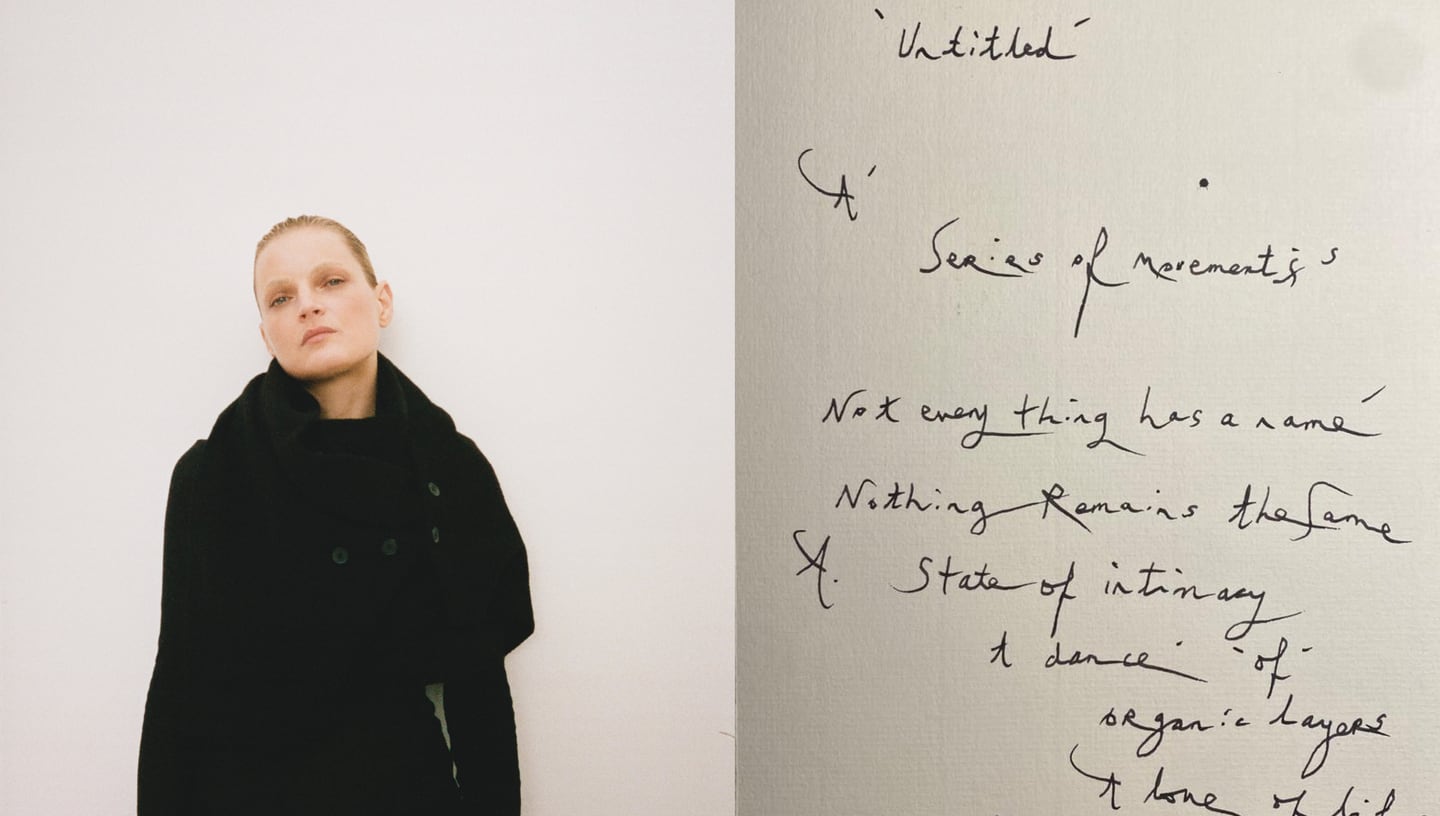 'Untitled'
A'
Series of movements's
Not every thing has a name'
Nothing Remains the Same
A. State of intimacy
A dance' 'of'
organic layers
A love of